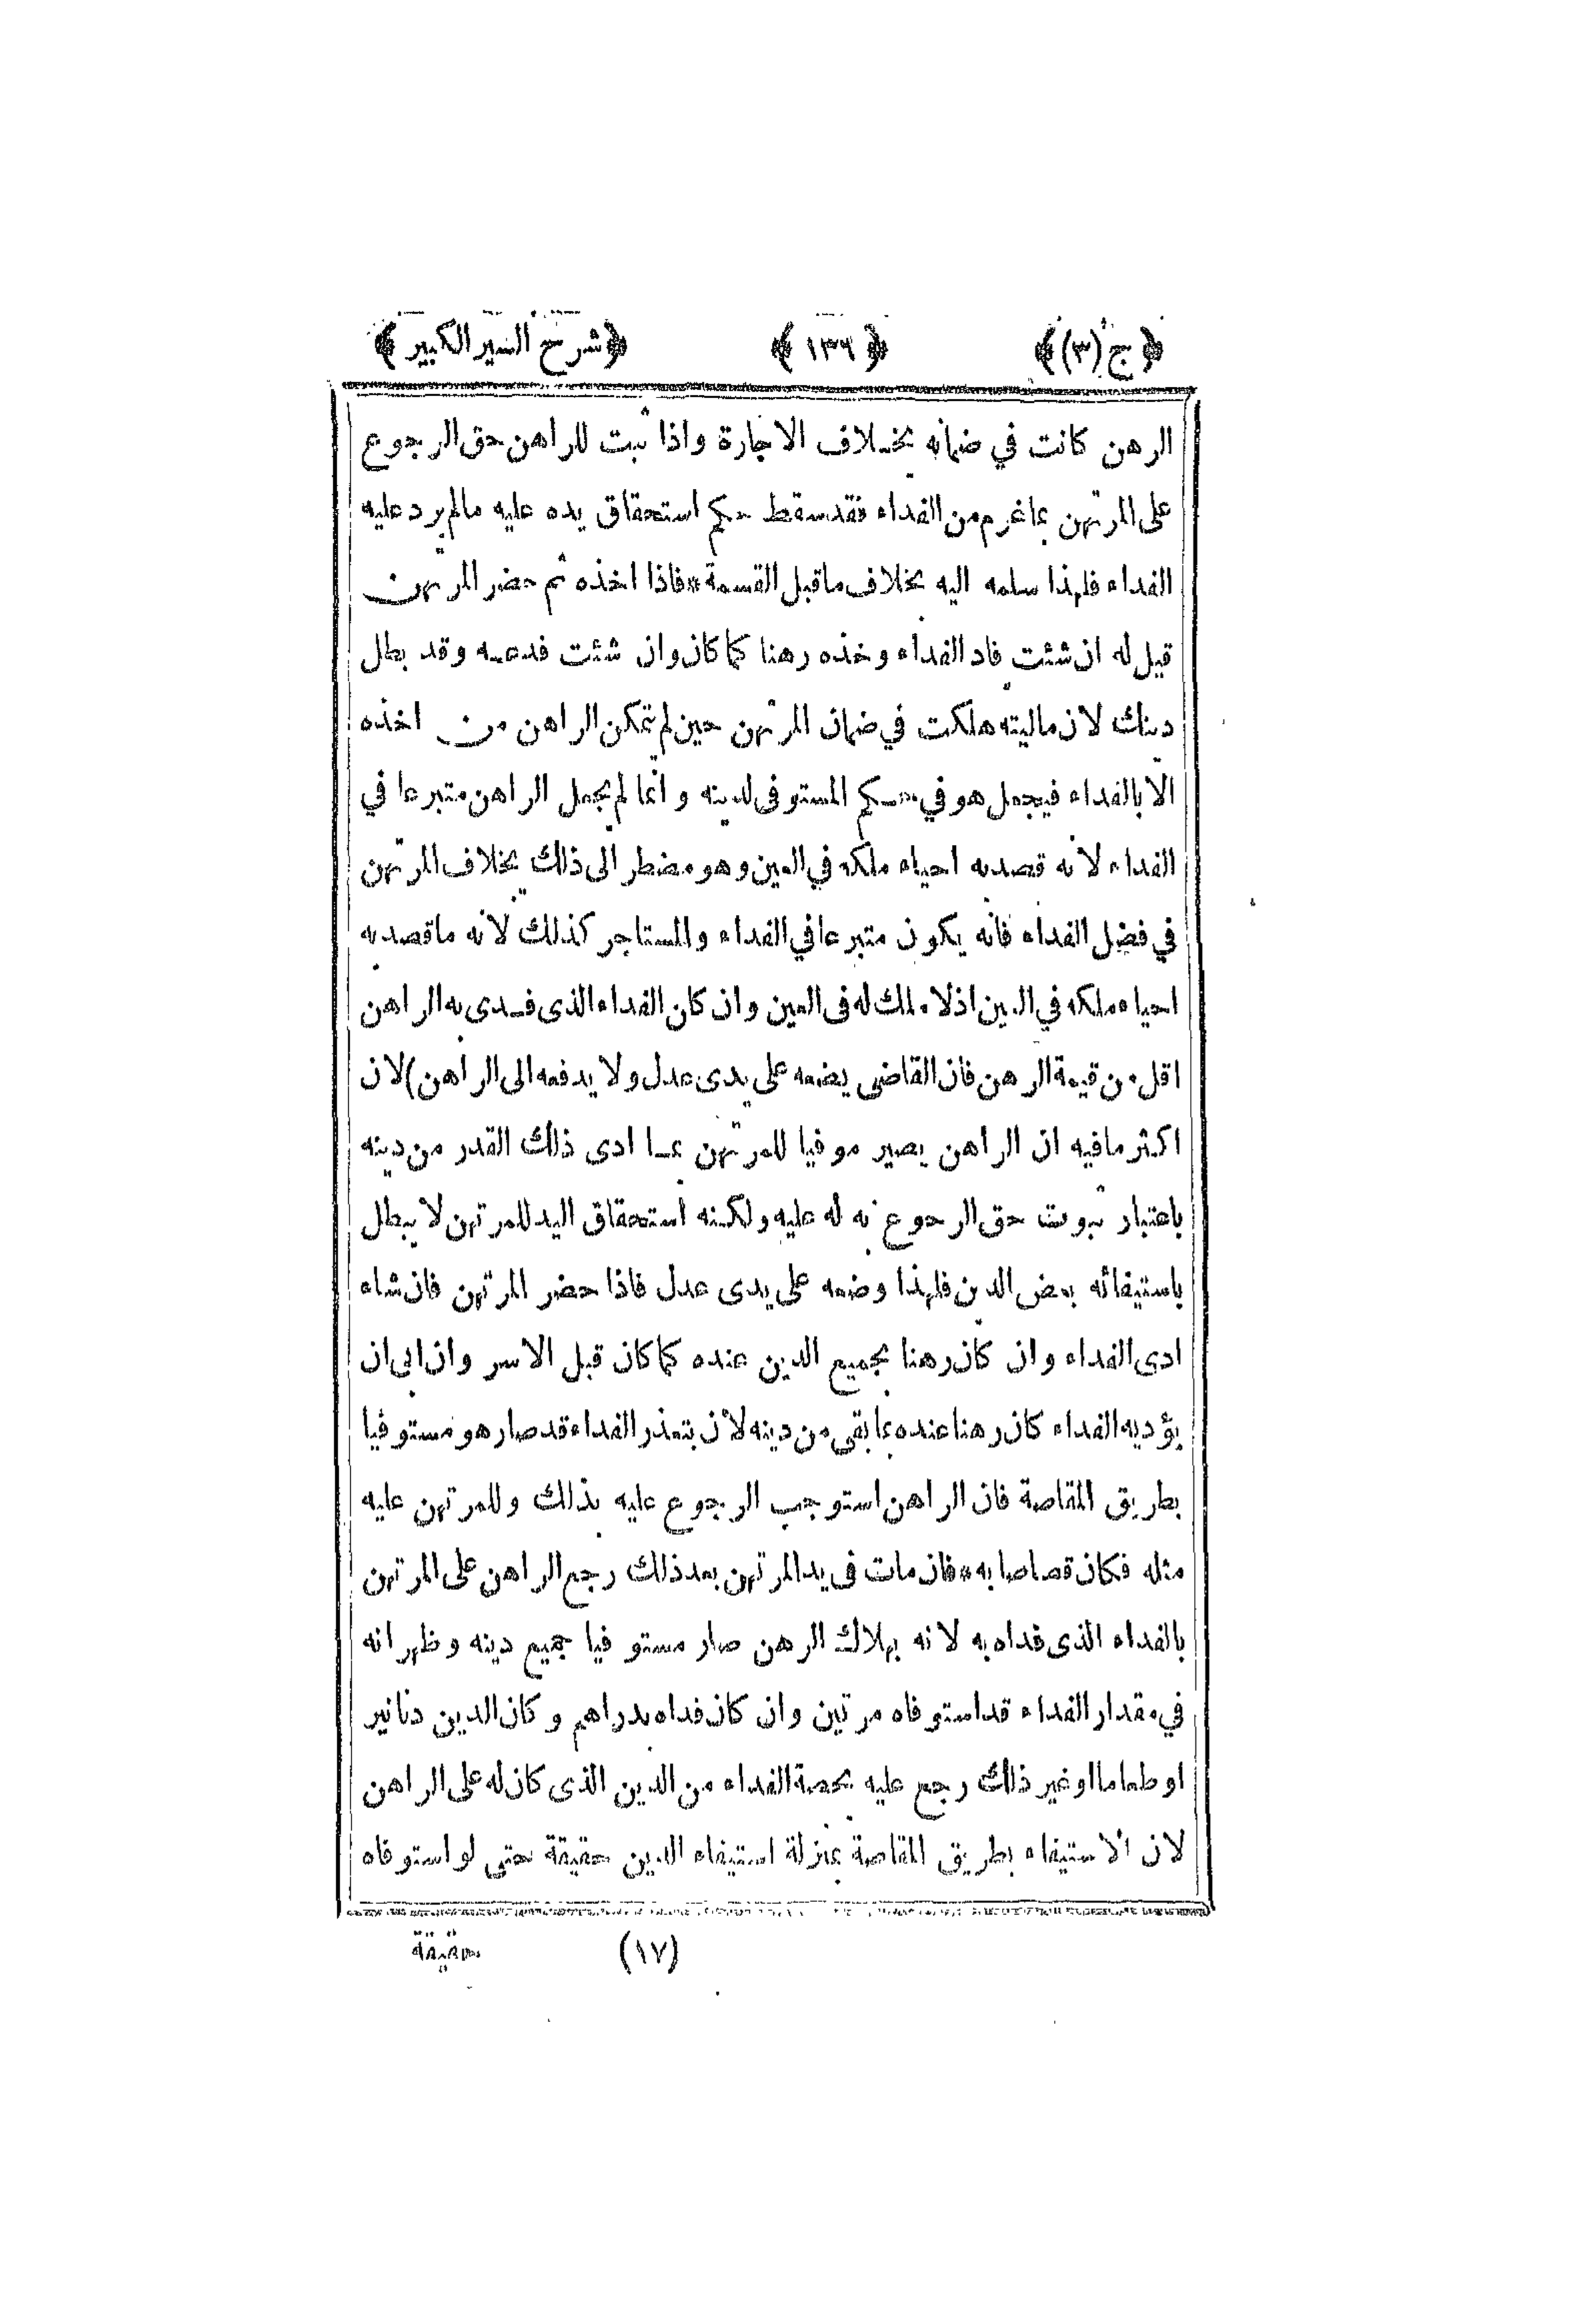 ﴿ ج (٣) ﴾ ﴿ ١٣٦ ﴾ ﴿ شرح السير الكبير ﴾
الرهن كانت في ضمانه بخلاف الاجارة واذا ثبت للراهن حق الرجوع
على المرتهن بما غرم من الفداء فقد سقط حكم استحقاق يده عليه مالم يرد عليه
الفداء فلهذا سلمه اليه بخلاف ماقبل القسمة * فاذا اخذه ثم حضر المرتهن
قيل له ان شئت فاد الفداء وخذه رهنا كما كان وان شئت فدعه وقد بطل
دينك لان ماليته هلكت في ضمان المرتهن حين لم يتمكن الراهن من اخذه
الا بالفداء فيجعل هو في حكم المستوفى لدينه وانما لم يجعل الراهن متبرعا في
الفداء لانه قصد به احياء ملكه في العين وهو مضطر الى ذلك بخلاف المرتهن
في فضل الفداء فانه يكون متبرعا في الفداء والمستاجر كذلك لانه ماقصد به
احياء ملكه في العين اذ لا ملك له فى العين وان كان الفداء الذى فدى به الراهن
اقل من قيمة الرهن فان القاضى يضعه على يدى عدل ولا يدفعه الى الراهن) لان
اكثر مافيه ان الراهن يصير موفيا للمرتهن بما ادى ذلك القدر من دينه
باعتبار ثبوت حق الرجوع به له عليه ولكنه استحقاق اليد للمرتهن لا يبطل
باستيفائه بعض الدين فلهذا وضعه على يدى عدل فاذا حضر المرتهن فان شاء
ادى الفداء وان كان رهنا بجميع الدين عنده كما كان قبل الاسر وان ابى ان
يؤديه الفداء كان رهنا عنده بما بقى من دينه لان بتعذر الفداء قد صار هو مستوفيا
بطريق المقاصة فان الراهن استوجب الرجوع عليه بذلك وللمرتهن عليه
مثله فكان قصاصا به * فان مات فى يد المرتهن بعد ذلك رجع الراهن على المرتهن
بالفداء الذى فداه به لانه بهلاك الرهن صار مستوفيا جميع دينه وظهر انه
في مقدار الفداء قد استوفاه مرتين وان كان فداه بدراهم وكان الدين دنانير
او طعاما او غير ذلك رجع عليه بحصة الفداء من الدين الذى كان له على الراهن
لان الاستيفاء بطريق المقاصة بمنزلة استيفاء الدين حقيقة حتى لو استوفاه
(١٧) حقيقة